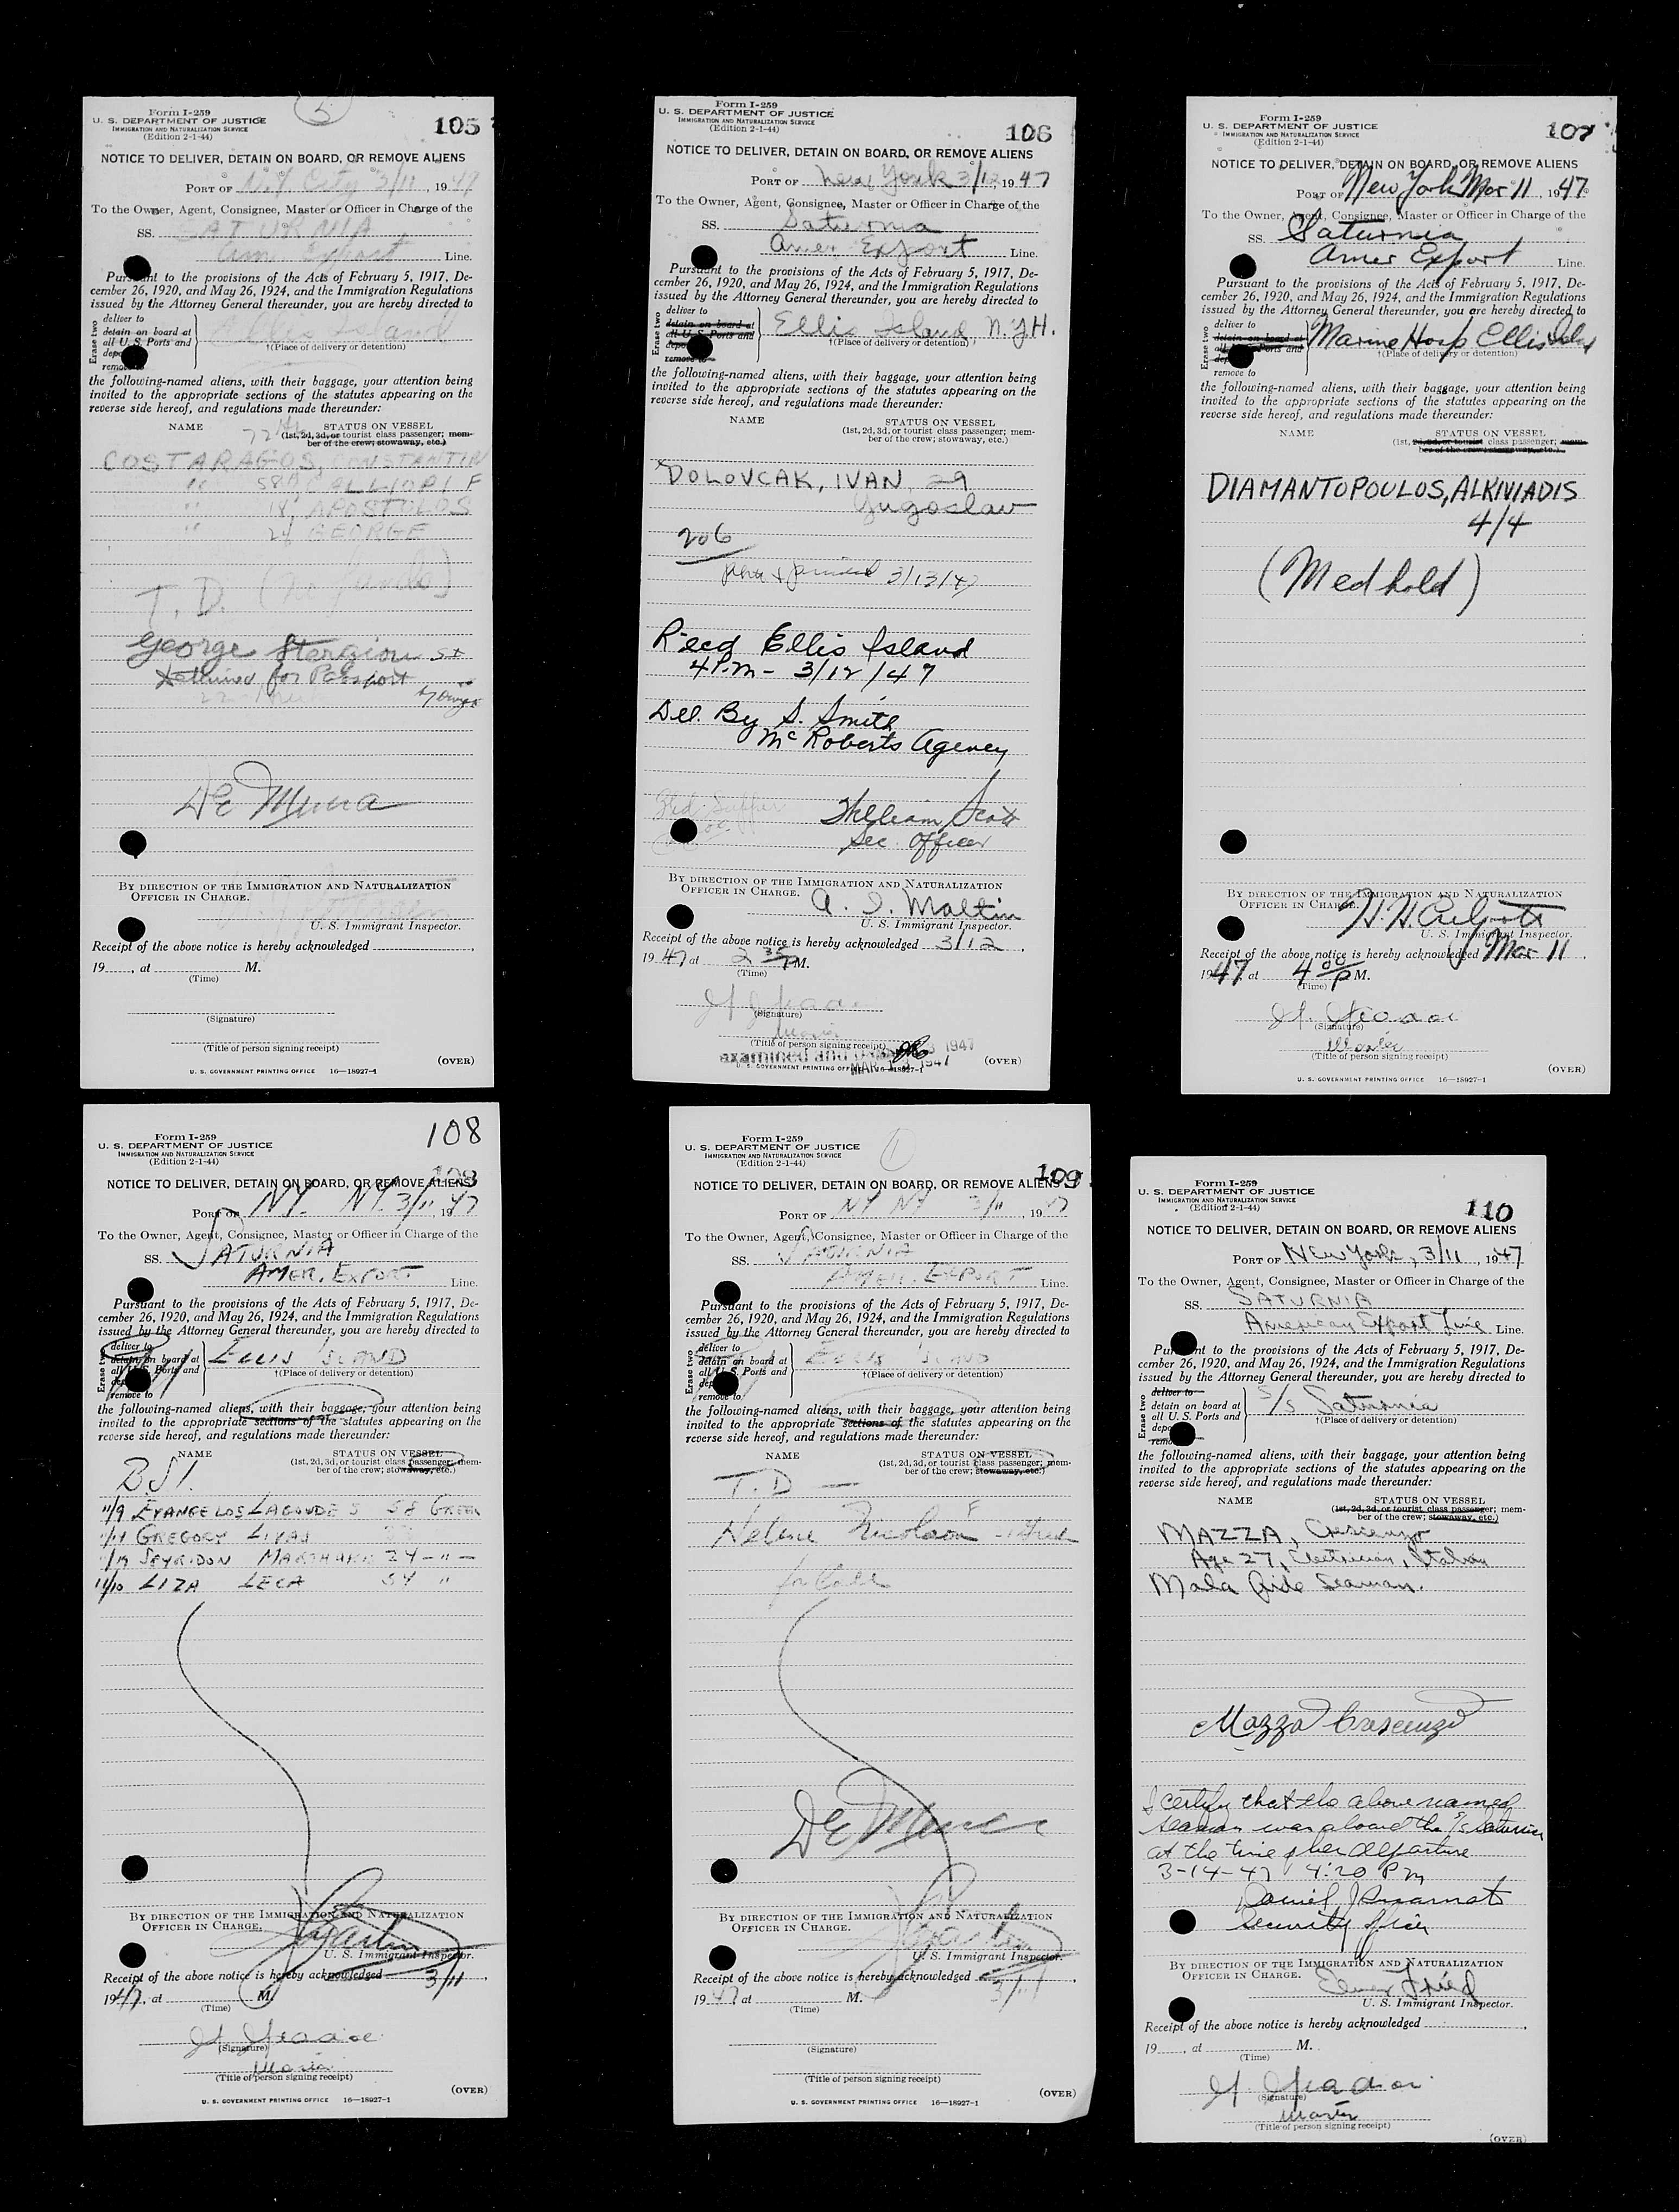 5
Form I-259
105
U. S. DEPARTMENT OF JUSTICE
IMMIGRATION AND NATURALIZATION SERVICE
(Edition 2-1-44)
NOTICE TO DELIVER, DETAIN ON BOARD, OR REMOVE ALIENS
PORT OF N.Y. City 3/11, 1947
To the Owner, Agent, Consignee, Master or Officer in Charge of the
SS. SATURNIA
Am. Export Line.
Pursuant to the provisions of the Acts of February 5, 1917, De-
cember 26, 1920, and May 26, 1924, and the Immigration Regulations
issued by the Attorney General thereunder, you are hereby directed to
Erase two
deliver to
detain on board at
all U. S. Ports and
remove to
Ellis Island
†(Place of delivery or detention)
the following-named aliens, with their baggage, your attention being
invited to the appropriate sections of the statutes appearing on the
reverse side hereof, and regulations made thereunder:
NAME STATUS ON VESSEL
(1st, 2d, 3d, or tourist class passenger; mem-
ber of the crew; stowaway, etc.)
COSTARAGOS, CONSTANTIN
" 58 CALLIOPI F
" 18 APOSTOLOS
" 24 GEORGE
T. D. (no funds)
George Stergiou
for Passport
De Mucca
BY DIRECTION OF THE IMMIGRATION AND NATURALIZATION
OFFICER IN CHARGE.
U. S. Immigrant Inspector.
Receipt of the above notice is hereby acknowledged
19, at M.
(Time)
(Signature)
(Title of person signing receipt)
(OVER)
U. S. GOVERNMENT PRINTING OFFICE 16—18927-1
Form I-259
U. S. DEPARTMENT OF JUSTICE
106
IMMIGRATION AND NATURALIZATION SERVICE
(Edition 2-1-44)
NOTICE TO DELIVER, DETAIN ON BOARD, OR REMOVE ALIENS
PORT OF New York 3/12 1947
To the Owner, Agent, Consignee, Master or Officer in Charge of the
SS. Saturnia
Amer. Export Line.
Pursuant to the provisions of the Acts of February 5, 1917, De-
cember 26, 1920, and May 26, 1924, and the Immigration Regulations
issued by the Attorney General thereunder, you are hereby directed to
Erase two
deliver to
detain on board at
all U. S. Ports and
remove to
Ellis Island, N.Y.H.
†(Place of delivery or detention)
the following-named aliens, with their baggage, your attention being
invited to the appropriate sections of the statutes appearing on the
reverse side hereof, and regulations made thereunder:
NAME STATUS ON VESSEL
(1st, 2d, 3d, or tourist class passenger; mem-
ber of the crew; stowaway, etc.)
DOLOVCAK, IVAN 29
Yugoslav
206
3/13/47
Recd Ellis Island
4 P.m - 3/12/47
Del. By S. Smith
McRoberts Agency
William Scott
Sec. Officer
BY DIRECTION OF THE IMMIGRATION AND NATURALIZATION
OFFICER IN CHARGE.
A. I. Maltin
U. S. Immigrant Inspector.
Receipt of the above notice is hereby acknowledged 3/12,
1947 at 2 35 P M.
(Time)
(Signature)
(Title of person signing receipt)
examined and
MAR 13 1947
(OVER)
U. S. GOVERNMENT PRINTING OFFICE 16—18927-1
Form I-259
U. S. DEPARTMENT OF JUSTICE
107
IMMIGRATION AND NATURALIZATION SERVICE
(Edition 2-1-44)
NOTICE TO DELIVER, DETAIN ON BOARD, OR REMOVE ALIENS
PORT OF New York Mar 11, 1947
To the Owner, Agent, Consignee, Master or Officer in Charge of the
SS. Saturnia
Amer Export Line.
Pursuant to the provisions of the Acts of February 5, 1917, De-
cember 26, 1920, and May 26, 1924, and the Immigration Regulations
issued by the Attorney General thereunder, you are hereby directed to
Erase two
deliver to
detain on board at
all U. S. Ports and
remove to
Marine Hosp Ellis Island
†(Place of delivery or detention)
the following-named aliens, with their baggage, your attention being
invited to the appropriate sections of the statutes appearing on the
reverse side hereof, and regulations made thereunder:
NAME STATUS ON VESSEL
(1st, 2d, 3d, or tourist class passenger; mem-
ber of the crew; stowaway, etc.)
DIAMANTOPOULOS, ALKIVIADIS
4/4
(Med hold)
BY DIRECTION OF THE IMMIGRATION AND NATURALIZATION
OFFICER IN CHARGE.
U. S. Immigrant Inspector.
Receipt of the above notice is hereby acknowledged Mar 11,
1947, at 4 00 P M.
(Time)
(Signature)
(Title of person signing receipt)
(OVER)
U. S. GOVERNMENT PRINTING OFFICE 16—18927-1
108
Form I-259
U. S. DEPARTMENT OF JUSTICE
IMMIGRATION AND NATURALIZATION SERVICE
(Edition 2-1-44)
108
NOTICE TO DELIVER, DETAIN ON BOARD, OR REMOVE ALIENS
PORT OF NY. NY. 3/11, 1947
To the Owner, Agent, Consignee, Master or Officer in Charge of the
SS. SATURNIA
AMER. EXPORT Line.
Pursuant to the provisions of the Acts of February 5, 1917, De-
cember 26, 1920, and May 26, 1924, and the Immigration Regulations
issued by the Attorney General thereunder, you are hereby directed to
Erase two
deliver to
detain on board at
all U. S. Ports and
remove to
ELLIS ISLAND
†(Place of delivery or detention)
the following-named aliens, with their baggage, your attention being
invited to the appropriate sections of the statutes appearing on the
reverse side hereof, and regulations made thereunder:
NAME STATUS ON VESSEL
(1st, 2d, 3d, or tourist class passenger; mem-
ber of the crew; stowaway, etc.)
B.S.I.
11/9 EVANGELOS LAGOUDES 58 GREEK
GREGORY LIVAS
SPYRIDON 24 - " -
11/10 LIZA LECA 54 "
BY DIRECTION OF THE IMMIGRATION AND NATURALIZATION
OFFICER IN CHARGE.
U. S. Immigrant Inspector.
Receipt of the above notice is hereby acknowledged 3/11,
1947, at M.
(Time)
(Signature)
(Title of person signing receipt)
(OVER)
U. S. GOVERNMENT PRINTING OFFICE 16—18927-1
1
Form I-259
U. S. DEPARTMENT OF JUSTICE
IMMIGRATION AND NATURALIZATION SERVICE
(Edition 2-1-44)
109
NOTICE TO DELIVER, DETAIN ON BOARD, OR REMOVE ALIENS
PORT OF NY NY 3/11, 1947
To the Owner, Agent, Consignee, Master or Officer in Charge of the
SS. SATURNIA
AMER. EXPORT Line.
Pursuant to the provisions of the Acts of February 5, 1917, De-
cember 26, 1920, and May 26, 1924, and the Immigration Regulations
issued by the Attorney General thereunder, you are hereby directed to
Erase two
deliver to
detain on board at
all U. S. Ports and
remove to
ELLIS ISLAND
†(Place of delivery or detention)
the following-named aliens, with their baggage, your attention being
invited to the appropriate sections of the statutes appearing on the
reverse side hereof, and regulations made thereunder:
NAME STATUS ON VESSEL
(1st, 2d, 3d, or tourist class passenger; mem-
ber of the crew; stowaway, etc.)
T. D —
Helene F
for Call
De Mucca
BY DIRECTION OF THE IMMIGRATION AND NATURALIZATION
OFFICER IN CHARGE.
U. S. Immigrant Inspector.
Receipt of the above notice is hereby acknowledged 3/11,
1947 at M.
(Time)
(Signature)
(Title of person signing receipt)
(OVER)
U. S. GOVERNMENT PRINTING OFFICE 16—18927-1
Form I-259
U. S. DEPARTMENT OF JUSTICE
IMMIGRATION AND NATURALIZATION SERVICE
(Edition 2-1-44)
110
NOTICE TO DELIVER, DETAIN ON BOARD, OR REMOVE ALIENS
PORT OF New York, 3/11, 1947
To the Owner, Agent, Consignee, Master or Officer in Charge of the
SS. SATURNIA
American Export Line Line.
Pursuant to the provisions of the Acts of February 5, 1917, De-
cember 26, 1920, and May 26, 1924, and the Immigration Regulations
issued by the Attorney General thereunder, you are hereby directed to
Erase two
deliver to
detain on board at
all U. S. Ports and
S/S Saturnia
†(Place of delivery or detention)
the following-named aliens, with their baggage, your attention being
invited to the appropriate sections of the statutes appearing on the
reverse side hereof, and regulations made thereunder:
NAME STATUS ON VESSEL
(1st, 2d, 3d, or tourist class passenger; mem-
ber of the crew; stowaway, etc.)
MAZZA, Crescenzo
Age 27, Electrician, Italian
Mala Fide Seaman.
Mazza Crescenzo
I certify that the above named
seaman was aboard the S/S Saturnia
at the time of her departure
3-14-47 4:20 PM
Security Officer
BY DIRECTION OF THE IMMIGRATION AND NATURALIZATION
OFFICER IN CHARGE.
Elmer Fried
U. S. Immigrant Inspector.
Receipt of the above notice is hereby acknowledged
19, at M.
(Time)
(Signature)
Master
(Title of person signing receipt)
(OVER)